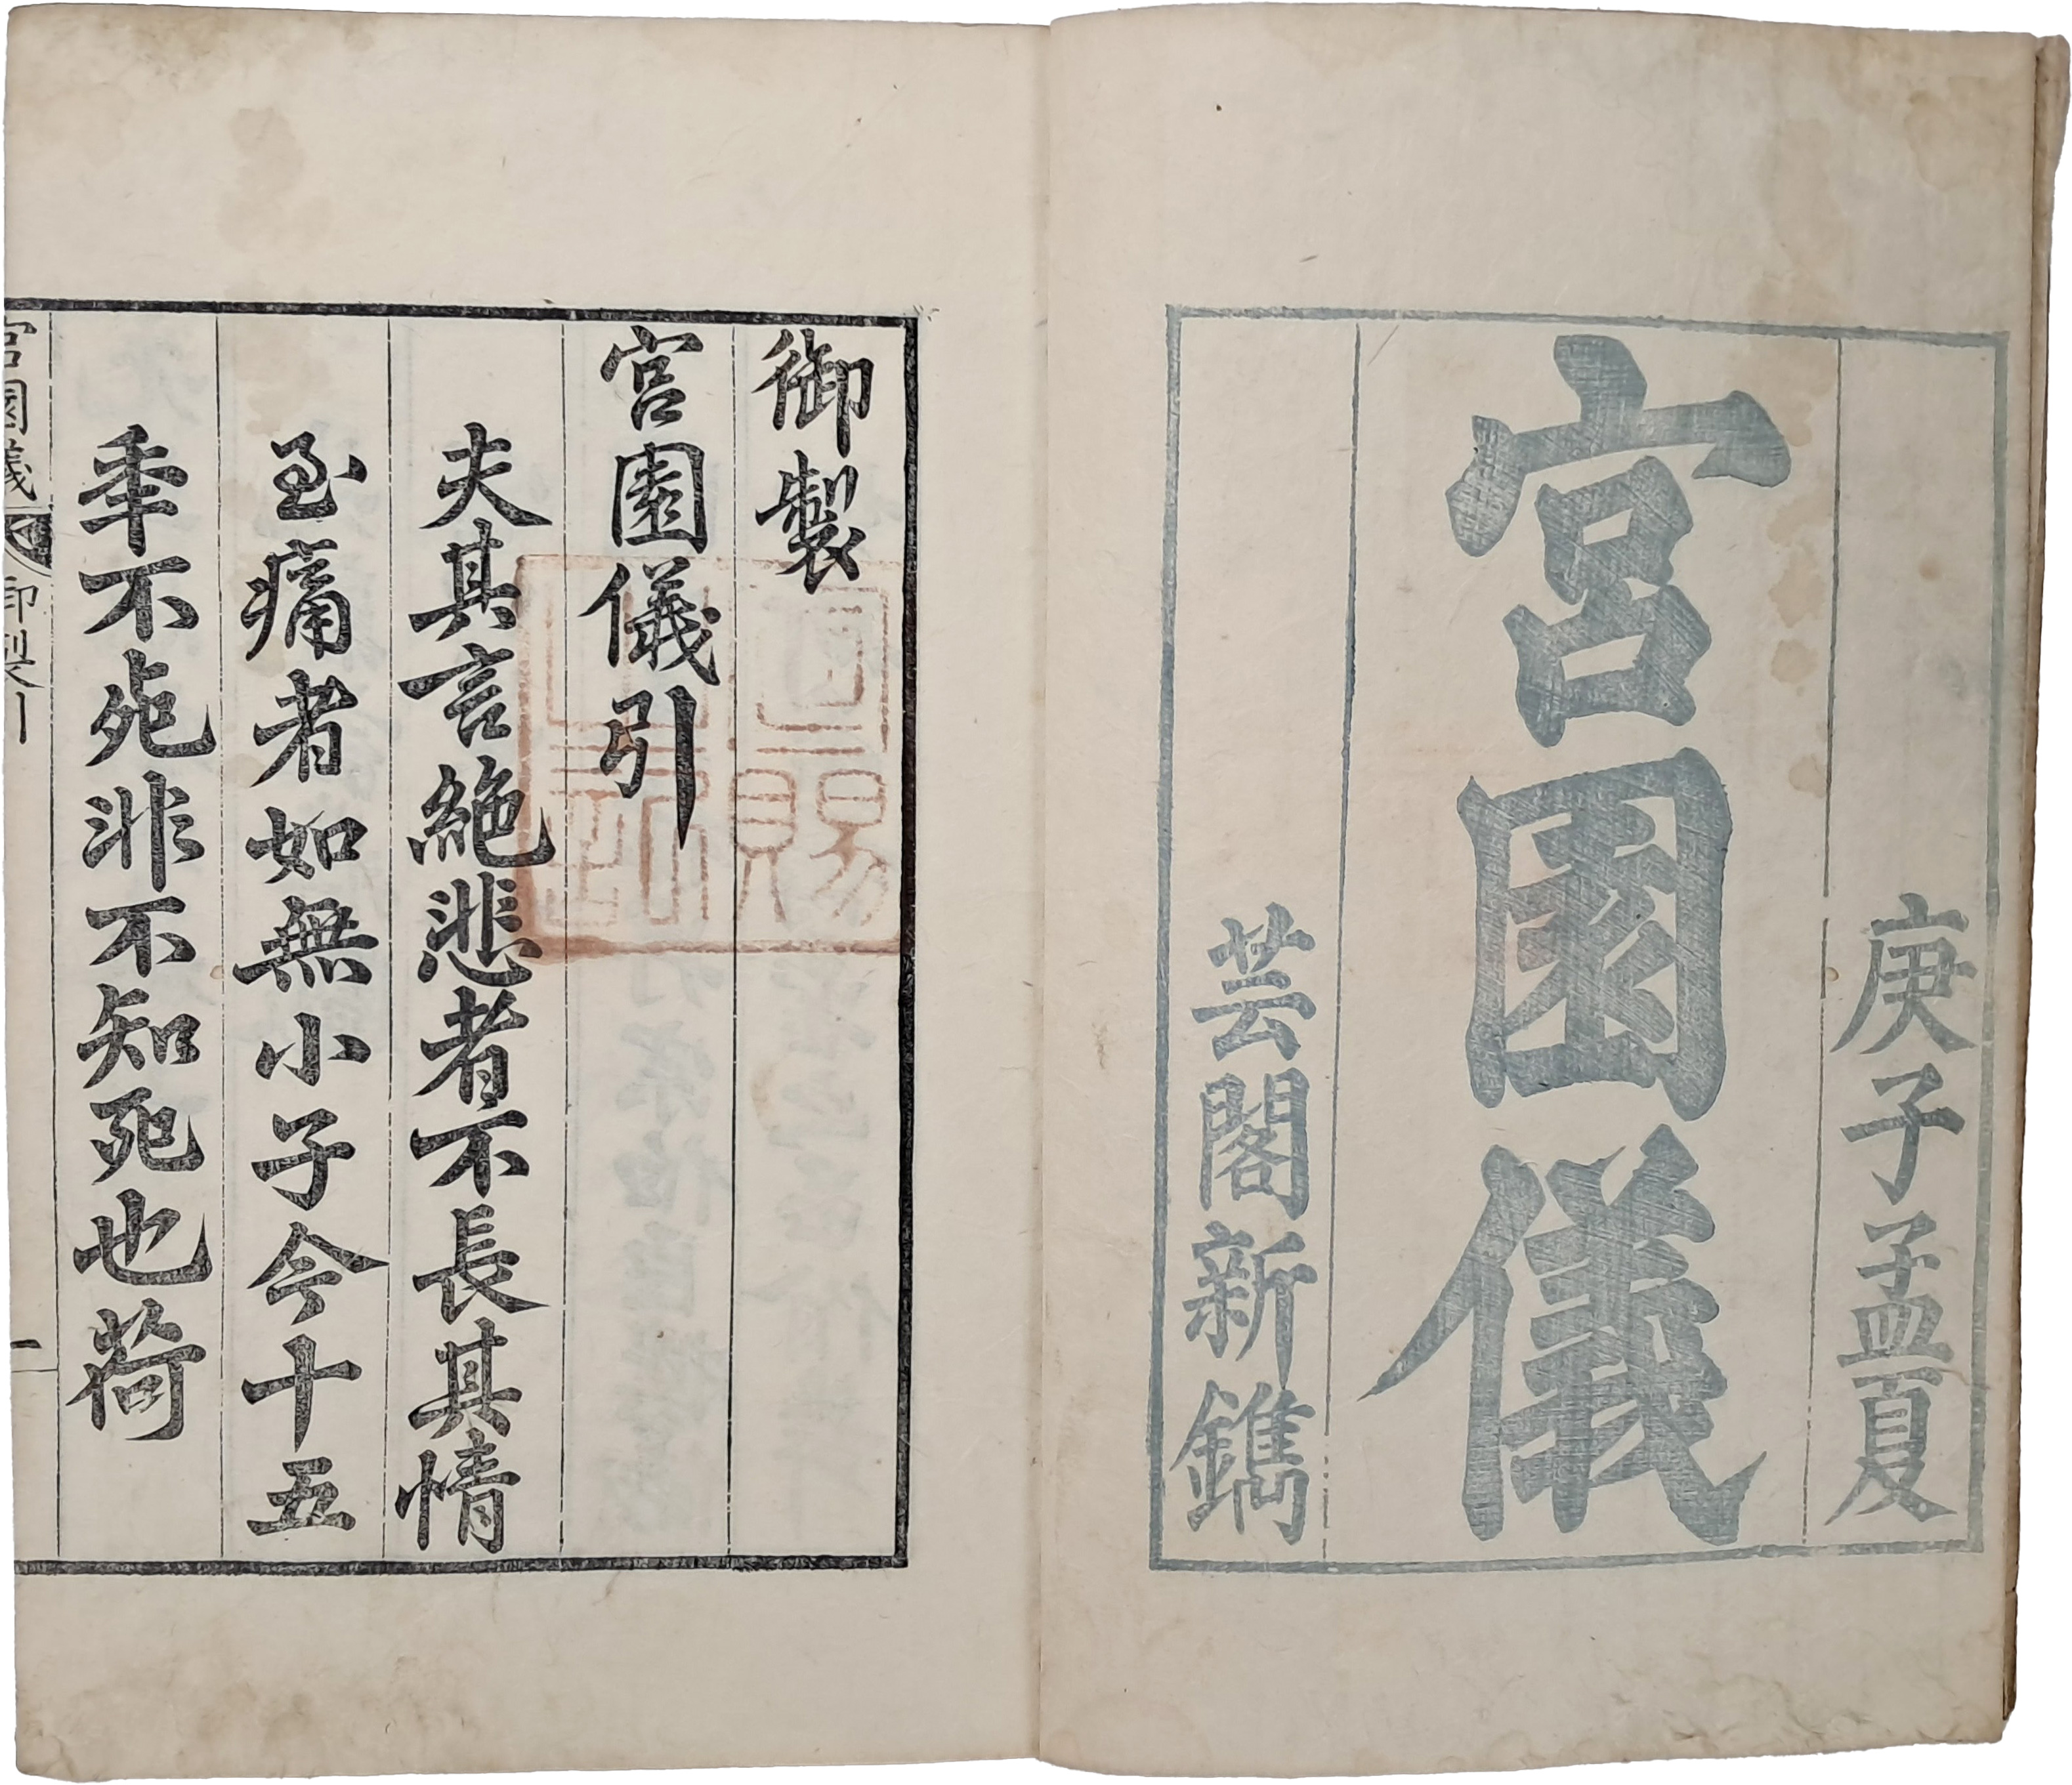 庚子孟夏
宮園儀
芸閣新鐫
御製
宮園儀引
夫其言絶悲者不長其情
至痛者如無小子今十五
秊不死非不知死也荷
宮園儀
御製
一